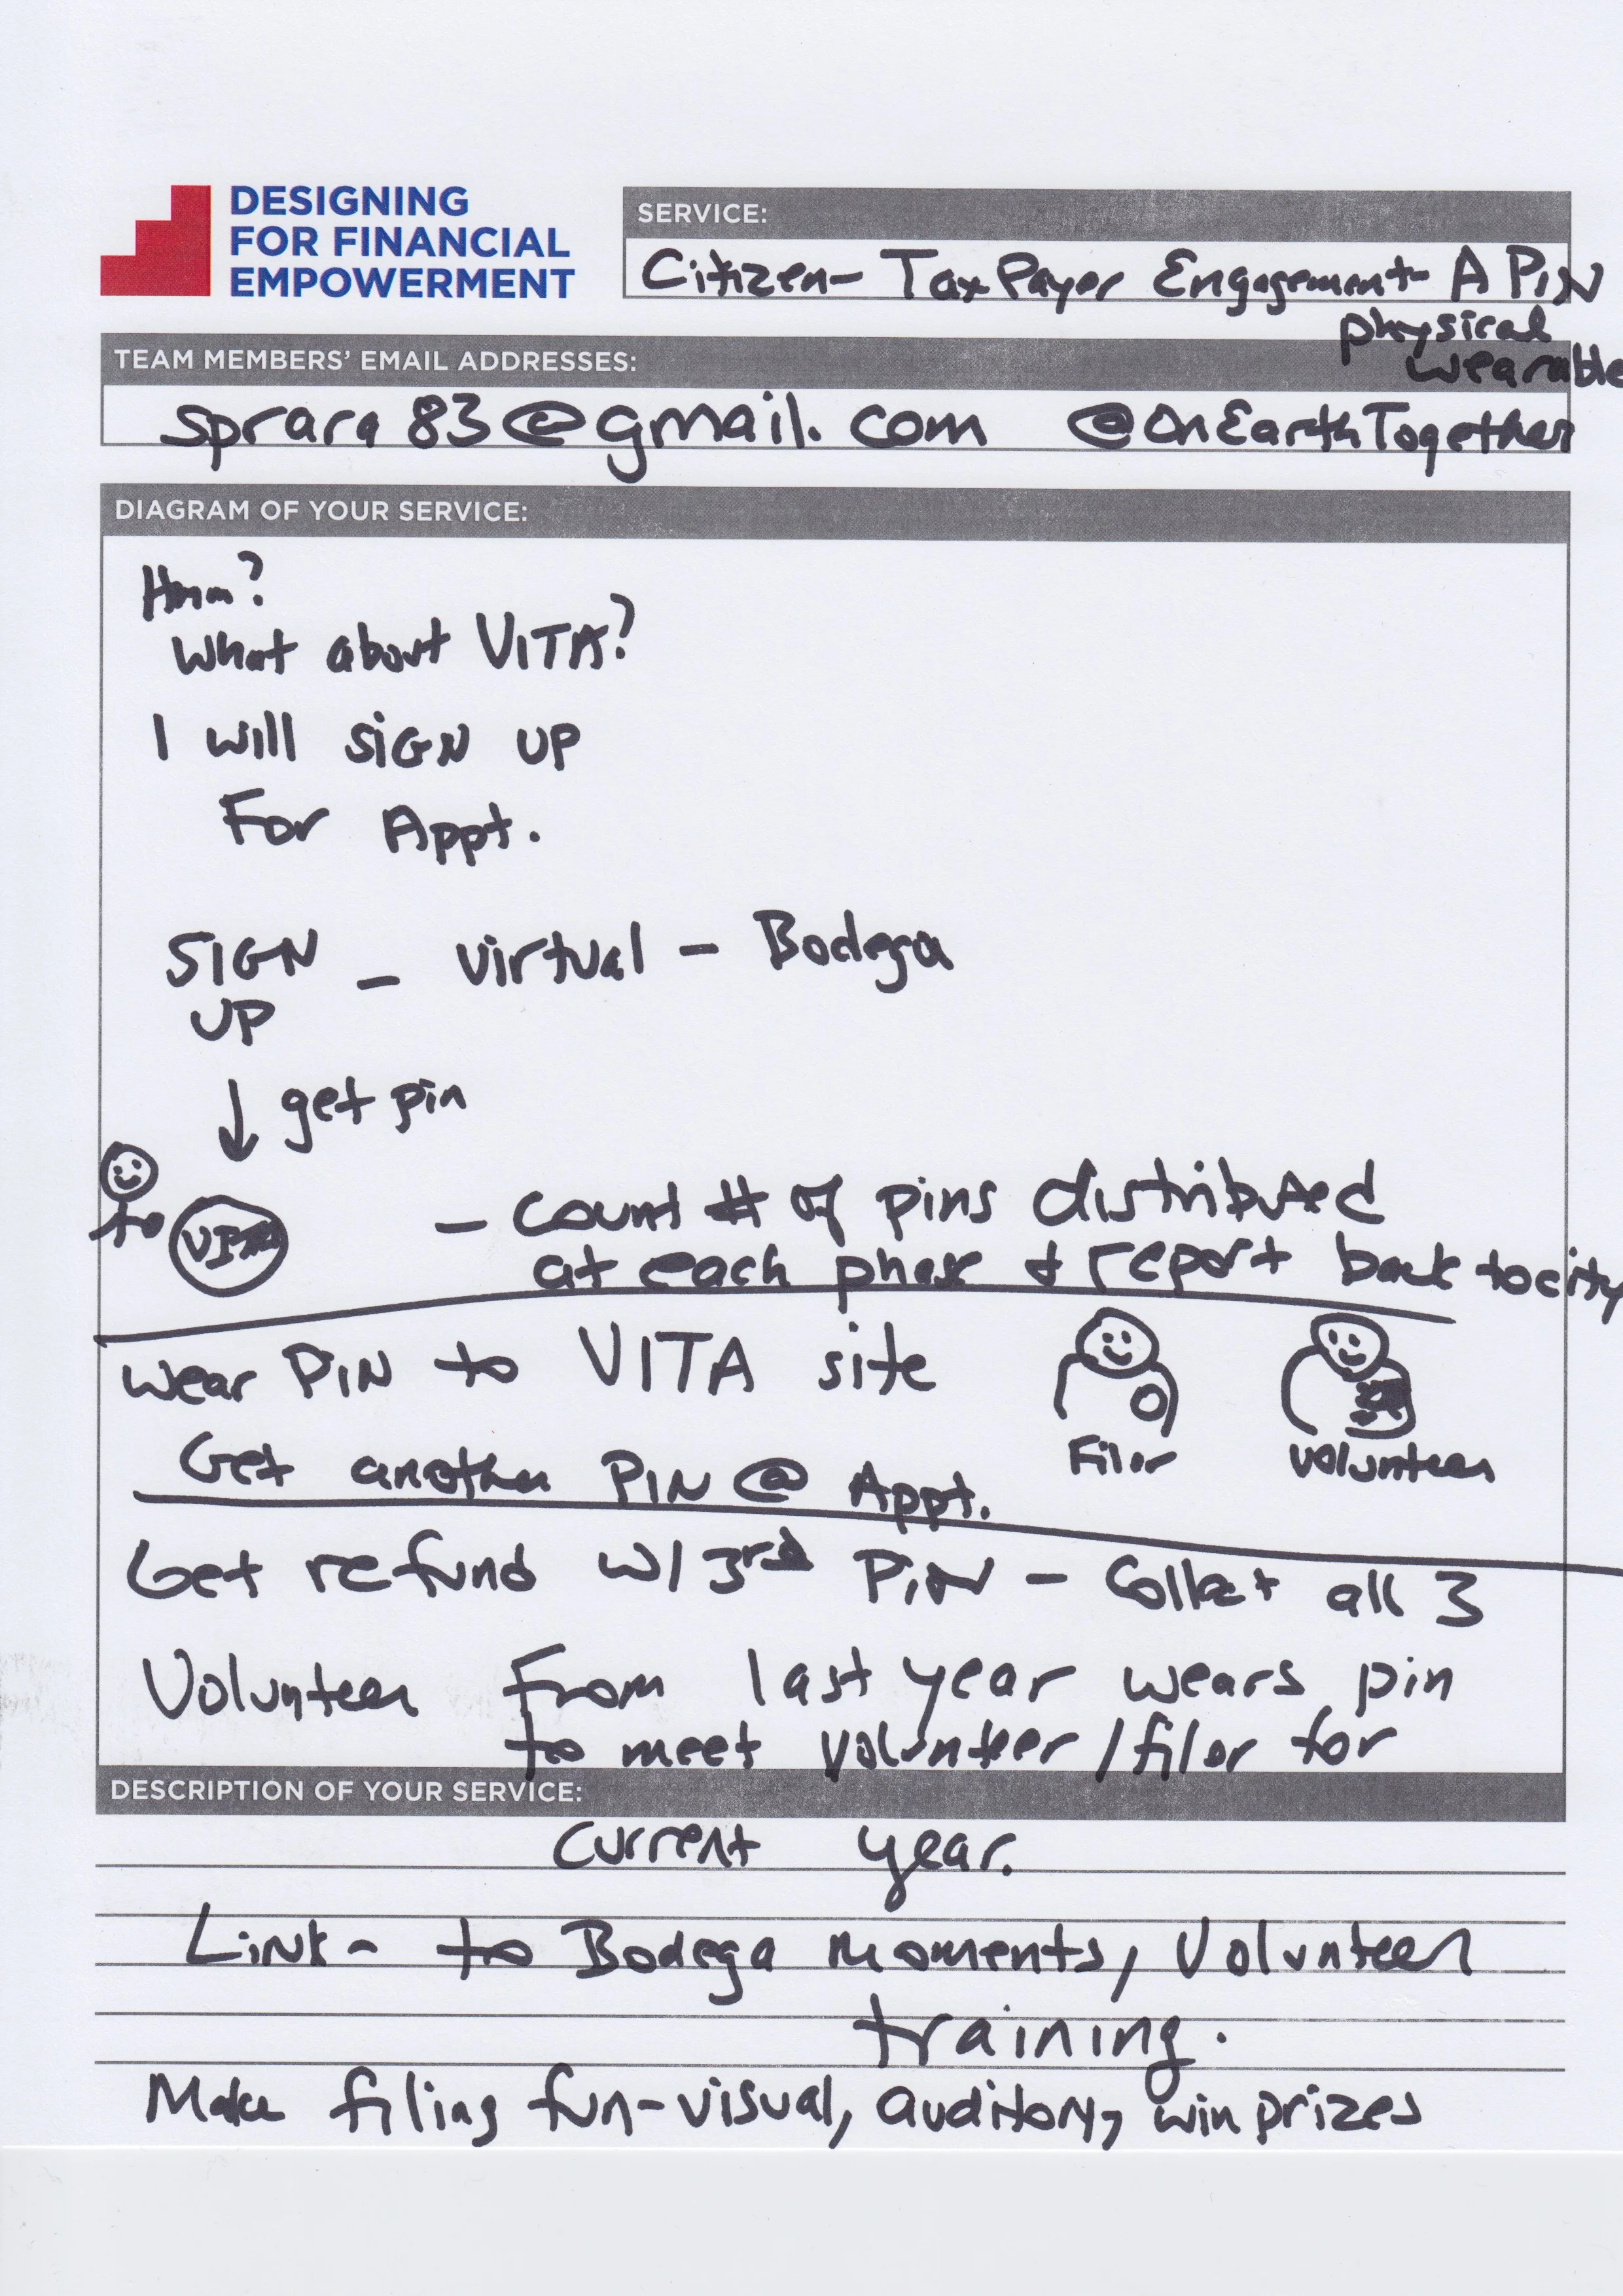 DESIGNING
FOR FINANCIAL
EMPOWERMENT
SERVICE:
Citizen- Tax Payer Engagement- A PiN
physical
wearable
TEAM MEMBERS' EMAIL ADDRESSES:
sprara83@gmail.com @OnEarthTogether
DIAGRAM OF YOUR SERVICE:
Hmm?
What about VITA?
I will SiGN UP
For Appt.
SIGN - virtual - Bodega
UP
get pin
to VITA - count # of pins distributed
at each phase & report back to city
Wear PIN to VITA site
Filor Volunteer
Get another PIN @ Appt.
Get refund w/ 3rd PiN - Collect all 3
Volunteer From last year wears pin
to meet volunteer/filor for
DESCRIPTION OF YOUR SERVICE:
current year.
Link- to Bodega moments, Volunteer
training.
Make filing fun-visual, auditory, win prizes